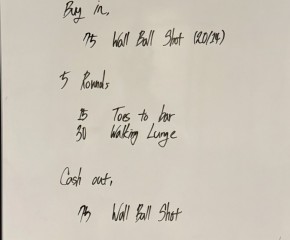 Buy in,
75 Wall Ball Shot (20/14)
5 Rounds
15 Toes to bar
30 Walking Lunge
Cash out,
75 Wall Ball Shot